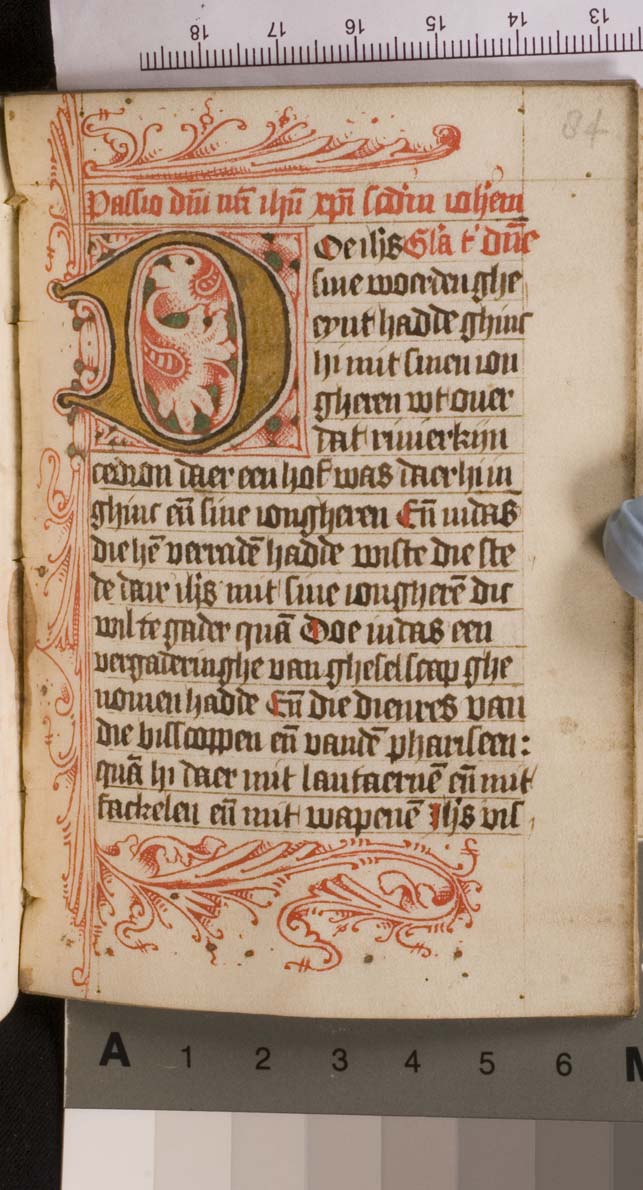 18 17 16 15 14 13
84
Passio dni nri ihu xpi scdm iohem
Doe ihs Gla t' dne
sine woerden ghe
eynt hadde ghinc
hi mit sinen ion
gheren wt ouer
dat riuierkijn
cedron daer een hof was daer hi in
ghinc en̄ sine iongheren En̄ iudas
die hē verradē hadde wiste die ste
de dair ihs mit sine iongherē dic
wil te gader quā Doe iudas een
vergaderinghe van gheselscap ghe
nomen hadde En̄ die dienres van
die bisscoppen en̄ vandē phariseen:
quā hi daer mit lantaernē en̄ mit
fackelen en̄ mit wapenē Ihs wis
A 1 2 3 4 5 6 M